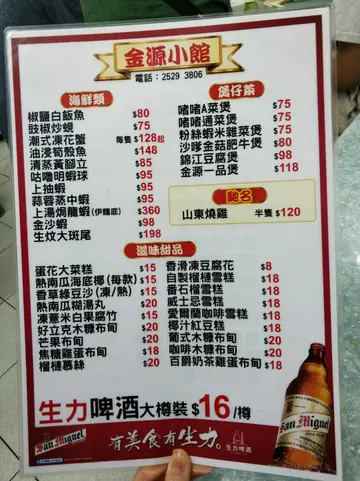 金源小館
電話：2529 3806
海鮮類
椒鹽白飯魚 $80
豉椒炒蜆 $75
潮式凍花蟹 每隻$128起
油浸筍殼魚 $148
清蒸黃腳立 $85
咕嚕明蝦球 $95
上抽蝦 $95
蒜蓉蒸中蝦 $95
上湯焗龍蝦(伊麵底) $360
金沙蝦 $98
生炆大斑尾 $198
煲仔菜
啫啫A菜煲 $75
啫啫通菜煲 $75
粉絲蝦米雜菜煲 $75
沙嗲金菇肥牛煲 $80
錦江豆腐煲 $98
金源一品煲 $118
馳名
山東燒雞 半隻$120
滋味甜品
蛋花大菜糕 $15
熱南瓜海底椰(每款) $15
香草綠豆沙(凍/熱) $15
熱南瓜糊湯丸 $20
凍薏米白果腐竹 $15
好立克木糠布甸 $20
芒果布甸 $20
焦糖雞蛋布甸 $18
榴槤慕絲 $20
香滑凍豆腐花 $8
自製榴槤雪糕 $18
番石榴雪糕 $18
威士忌雪糕 $18
愛爾蘭咖啡雪糕 $18
椰汁紅豆糕 $18
葡式木糠布甸 $20
咖啡木糠布甸 $20
百爵奶茶雞蛋布甸 $18
生力啤酒大樽裝 $16/樽
San Miguel
有美食有生力。
生力啤酒
San Miguel